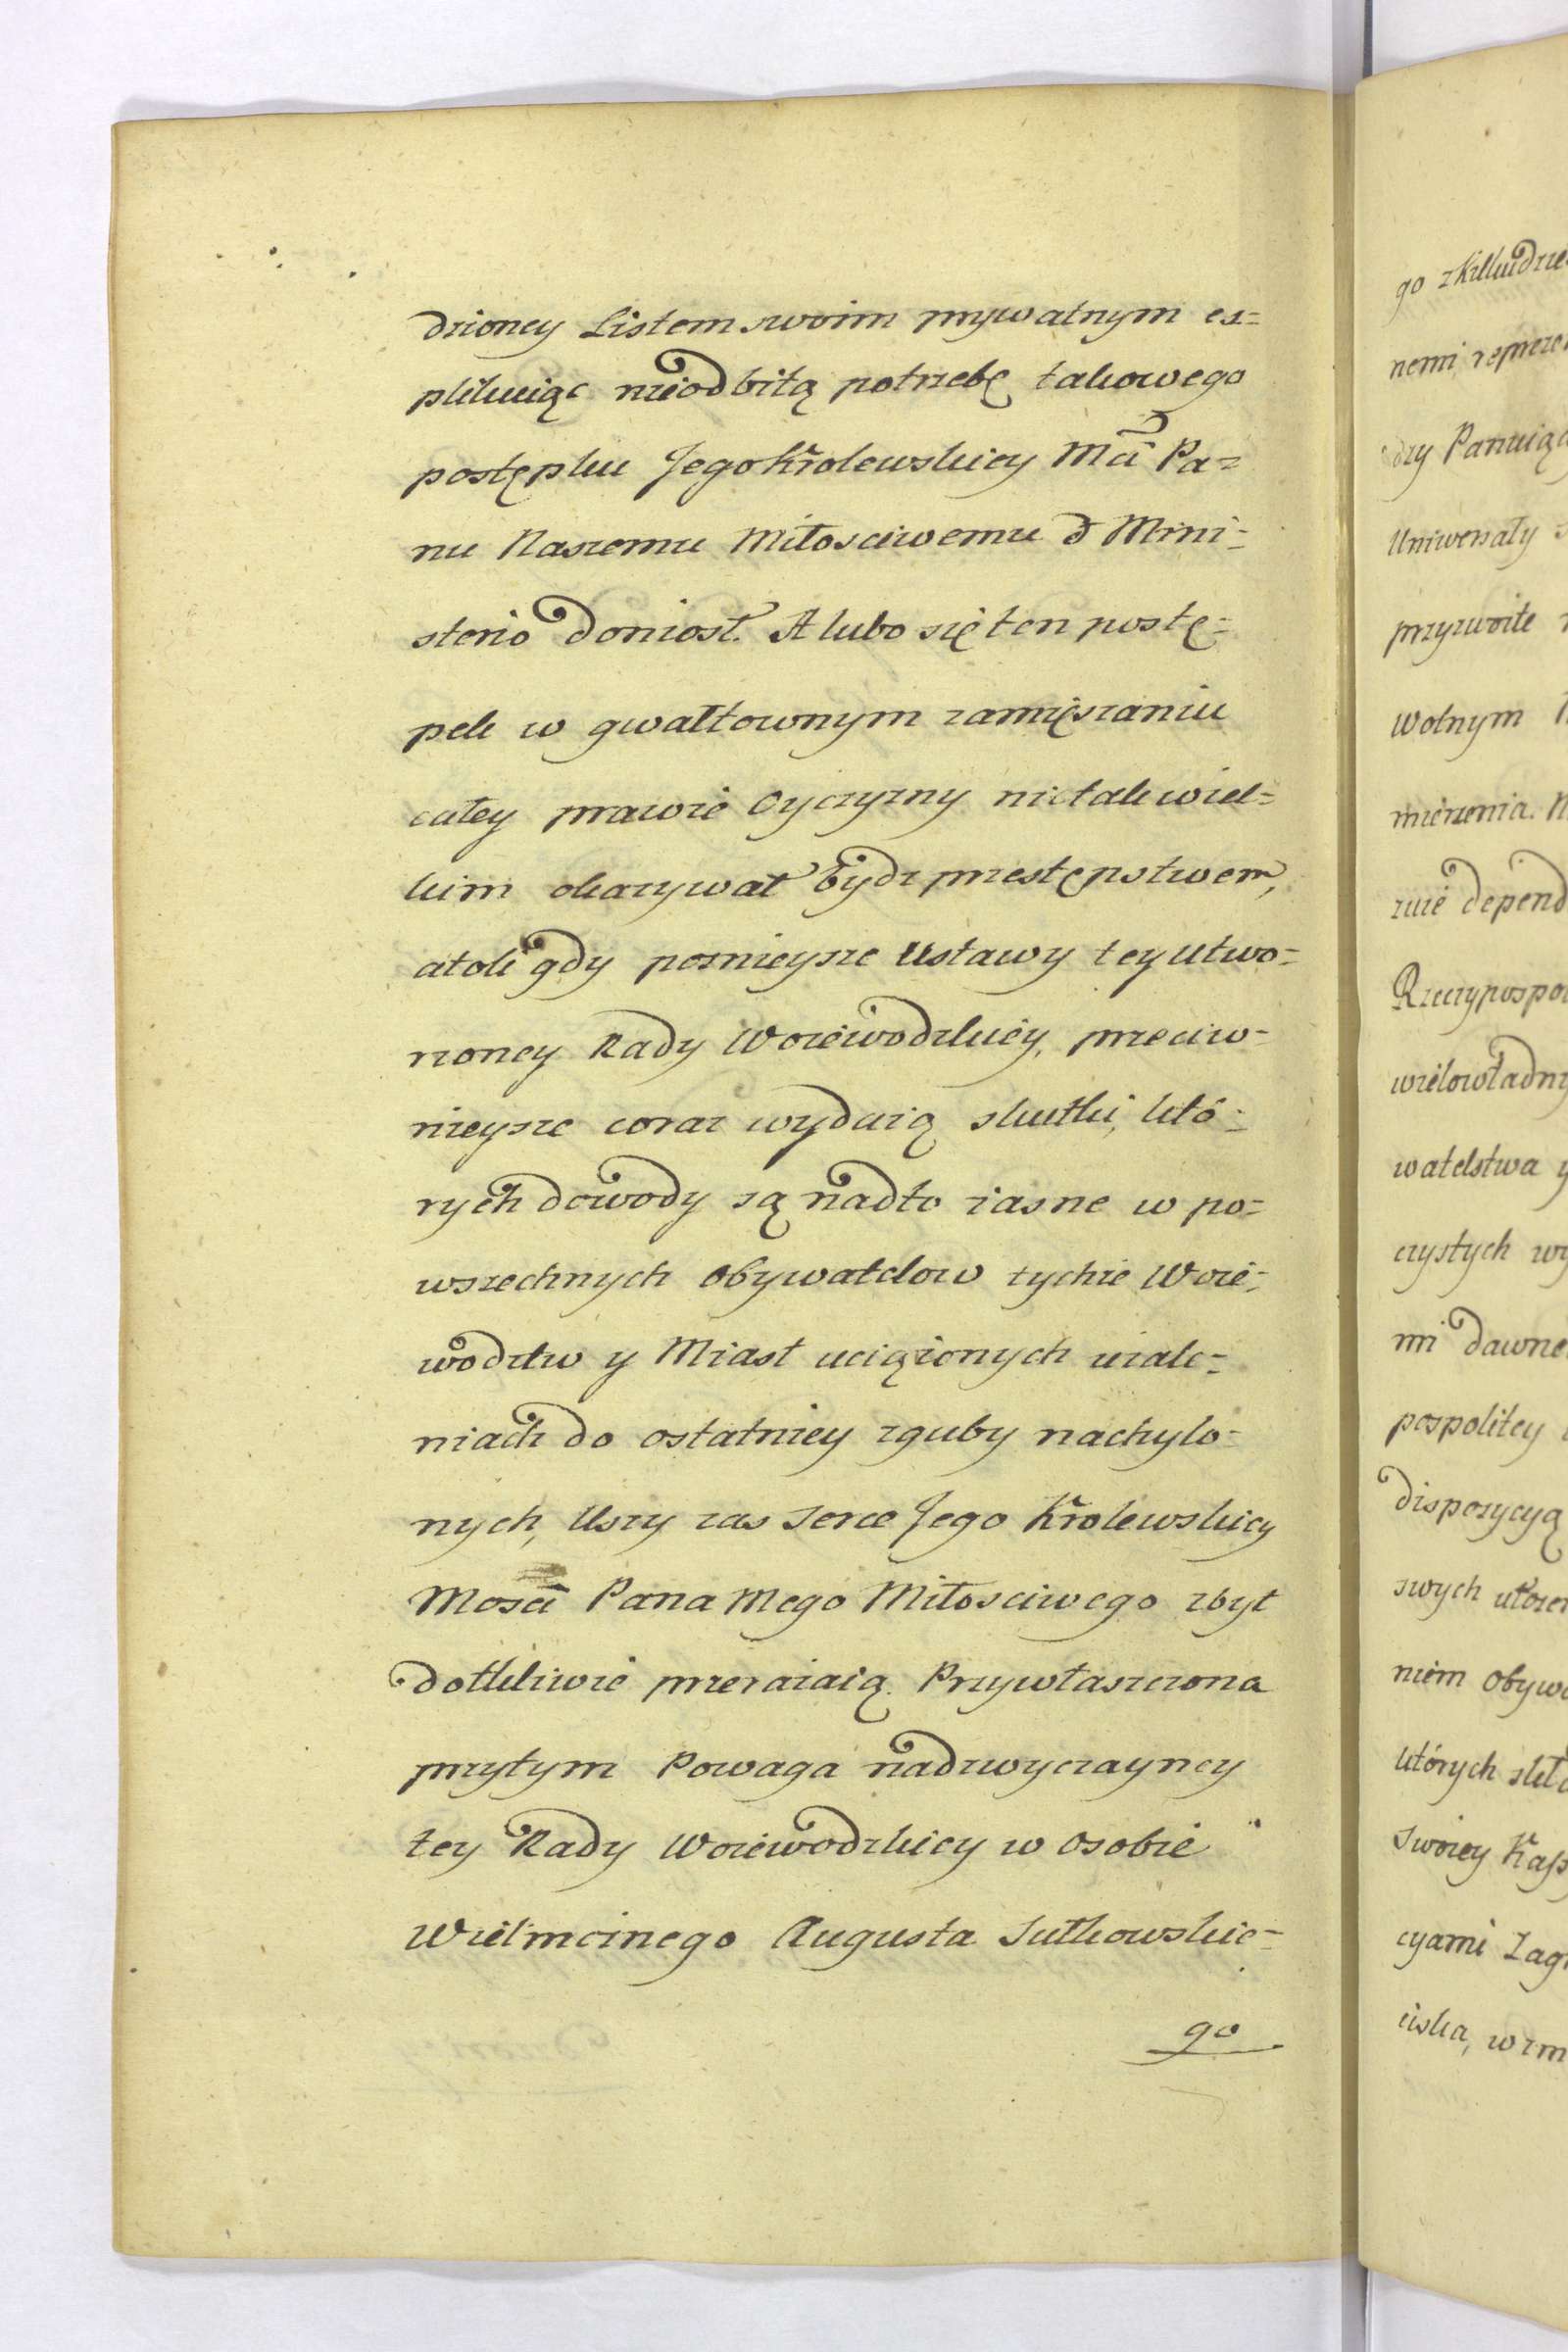 dzioney Listem swoim prywatnym ex=
plikuiąc nieodbitą potrzebę takowego
postępku Jego Krolewskiey Mci Pa=
nu Naszemu Miłosciwemu & Mini=
sterio doniosł. A lubo się ten postę=
pek w gwałtownym zamięszaniu
całey prawie Oyczyzny nietak wiel=
kim okazywał bydz przestępstwem,
atoli gdy poznieysze Ustawy tey utwo=
rzoney Rady Woiewodzkiey, przeciw=
nieysze coraz wydaią skutki, któ=
rych dowody są nadto iasne w po=
wszechnych Obywatelow tychże Woie=
wodztw y Miast uciążonych użale=
niach do ostatniey zguby nachylo=
nych, Uszy zas Serce Jego Krolewskiey
Mosci Pana Mego Miłosciwego zbyt
dotkliwie przerażaią. Przywłaszczona
przytym Powaga nadzwyczayney
tey Rady Woiewodzkiey w Osobie
Wielmcinego Augusta Sułkowskie=
go
go zkilkudzie
nemi
dzy Panuiąc
Uniwersały
przyzwoite
wolnym
mierzenia.
depend
Rzeczypospo
wielowładn
watelstwa y
czystych wy
mi dawne
pospolitey
dispozycyą
swych ułoże
niem Obywa
których
Swoiey
cyami Zag